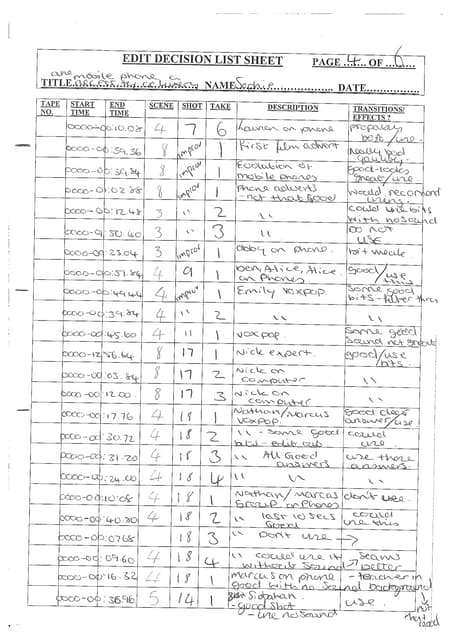 EDIT DECISION LIST SHEET PAGE 4 OF 6
are mobile phone a
TITLE NAME Sophie DATE
TAPE NO. START TIME END TIME SCENE SHOT TAKE DESCRIPTION TRANSITIONS/ EFFECTS?
0000-00:10.08 4 7 6 Lauren on phone probably best/use.
0000-00:59.36 8 improv 1 First film advert Really bad quality.
0000-00:39.84 8 improv 1 Evolution of mobile phones Good-looks great/use
0000-01:02.88 8 improv 1 Phone adverts - not that good would recomend using.
0000-00:12.48 3 " 2 " could use bits with no sound
0000-9:50.40 3 " 3 " DO NOT USE
0000-00:23.04 3 improv 1 on phone. bit
0000-00:57.84 4 9 1 Ben, Alice, Alice on Phones good/use this
0000-00:49.44 4 improv 1 Emily voxpop. some good bits - filter thru
0000-00:39.84 4 " 2 " "
0000-00:45.60 4 " 1 voxpop. some good sound not great
0000-12:56.64 8 17 1 Nick expert. good/use bits.
0000-00:03.84 8 17 2 Nick on computer "
0000-00:12.00 8 17 3 Nick on computer "
0000-00:17.76 4 18 1 Nathan/Marcus voxpop. good clear answer/use
0000-00:30.72 4 18 2 " - some good bits - edit out could use.
0000-00:31.20 4 18 3 " All Good answers use those answers.
0000-00:24.00 4 18 4 " "
0000-00:10.08 4 18 1 Nathan/Marcus Group on Phones don't use.
0000-00:40.80 4 18 2 " last 10 secs Good could use this
0000-00:07.68 18 3 " Don't use →
0000-00:09.60 4 18 4 " could use it without sound → seems better
0000-00:16.32 4 18 1 marcus on phone - teacher in good with no sound background
0000-00:36.96 5 14 1 - good shot - use no sound use.
↓ not that good